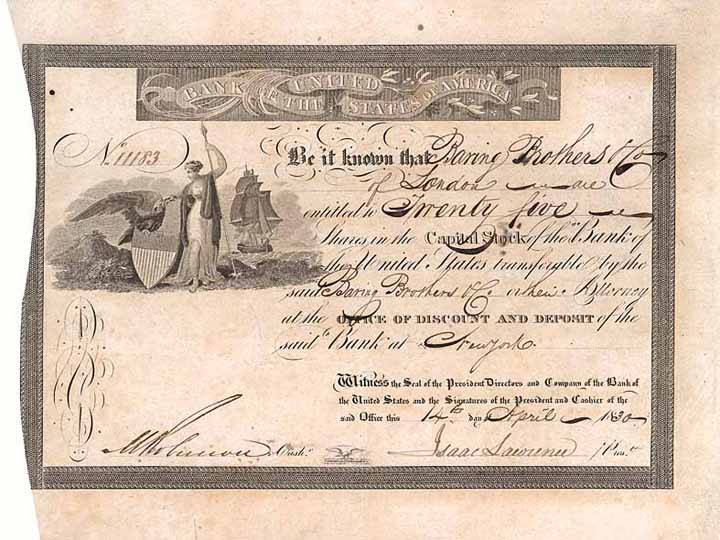 BANK OF THE UNITED STATES OF AMERICA
No. 11183
Be it known that Baring Brothers & Co
of London are
entitled to Twenty five
Shares in the Capital Stock of the Bank of
the United States transferable by the
said Baring Brothers & Co or their Attorney
at the OFFICE OF DISCOUNT AND DEPOSIT of the
said Bank at New york.
Witness the Seal of the President Directors and Company of the Bank of
the United States and the Signatures of the President and Cashier of the
said Office this 14th day April 1830
M Robinson Cashr. Isaac Lawrence Prest.